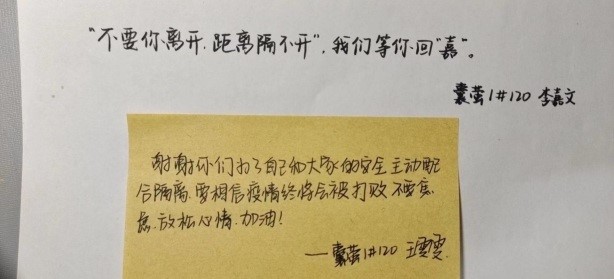 “不要你离开,距离隔不开”,我们等你回“嘉”。
囊萤1#120 李嘉文
谢谢你们为了自己和大家的安全主动配
合隔离,要相信疫情终将会被打败 不要焦
虑,放松心情,加油!
——囊萤1#120 王雯雯